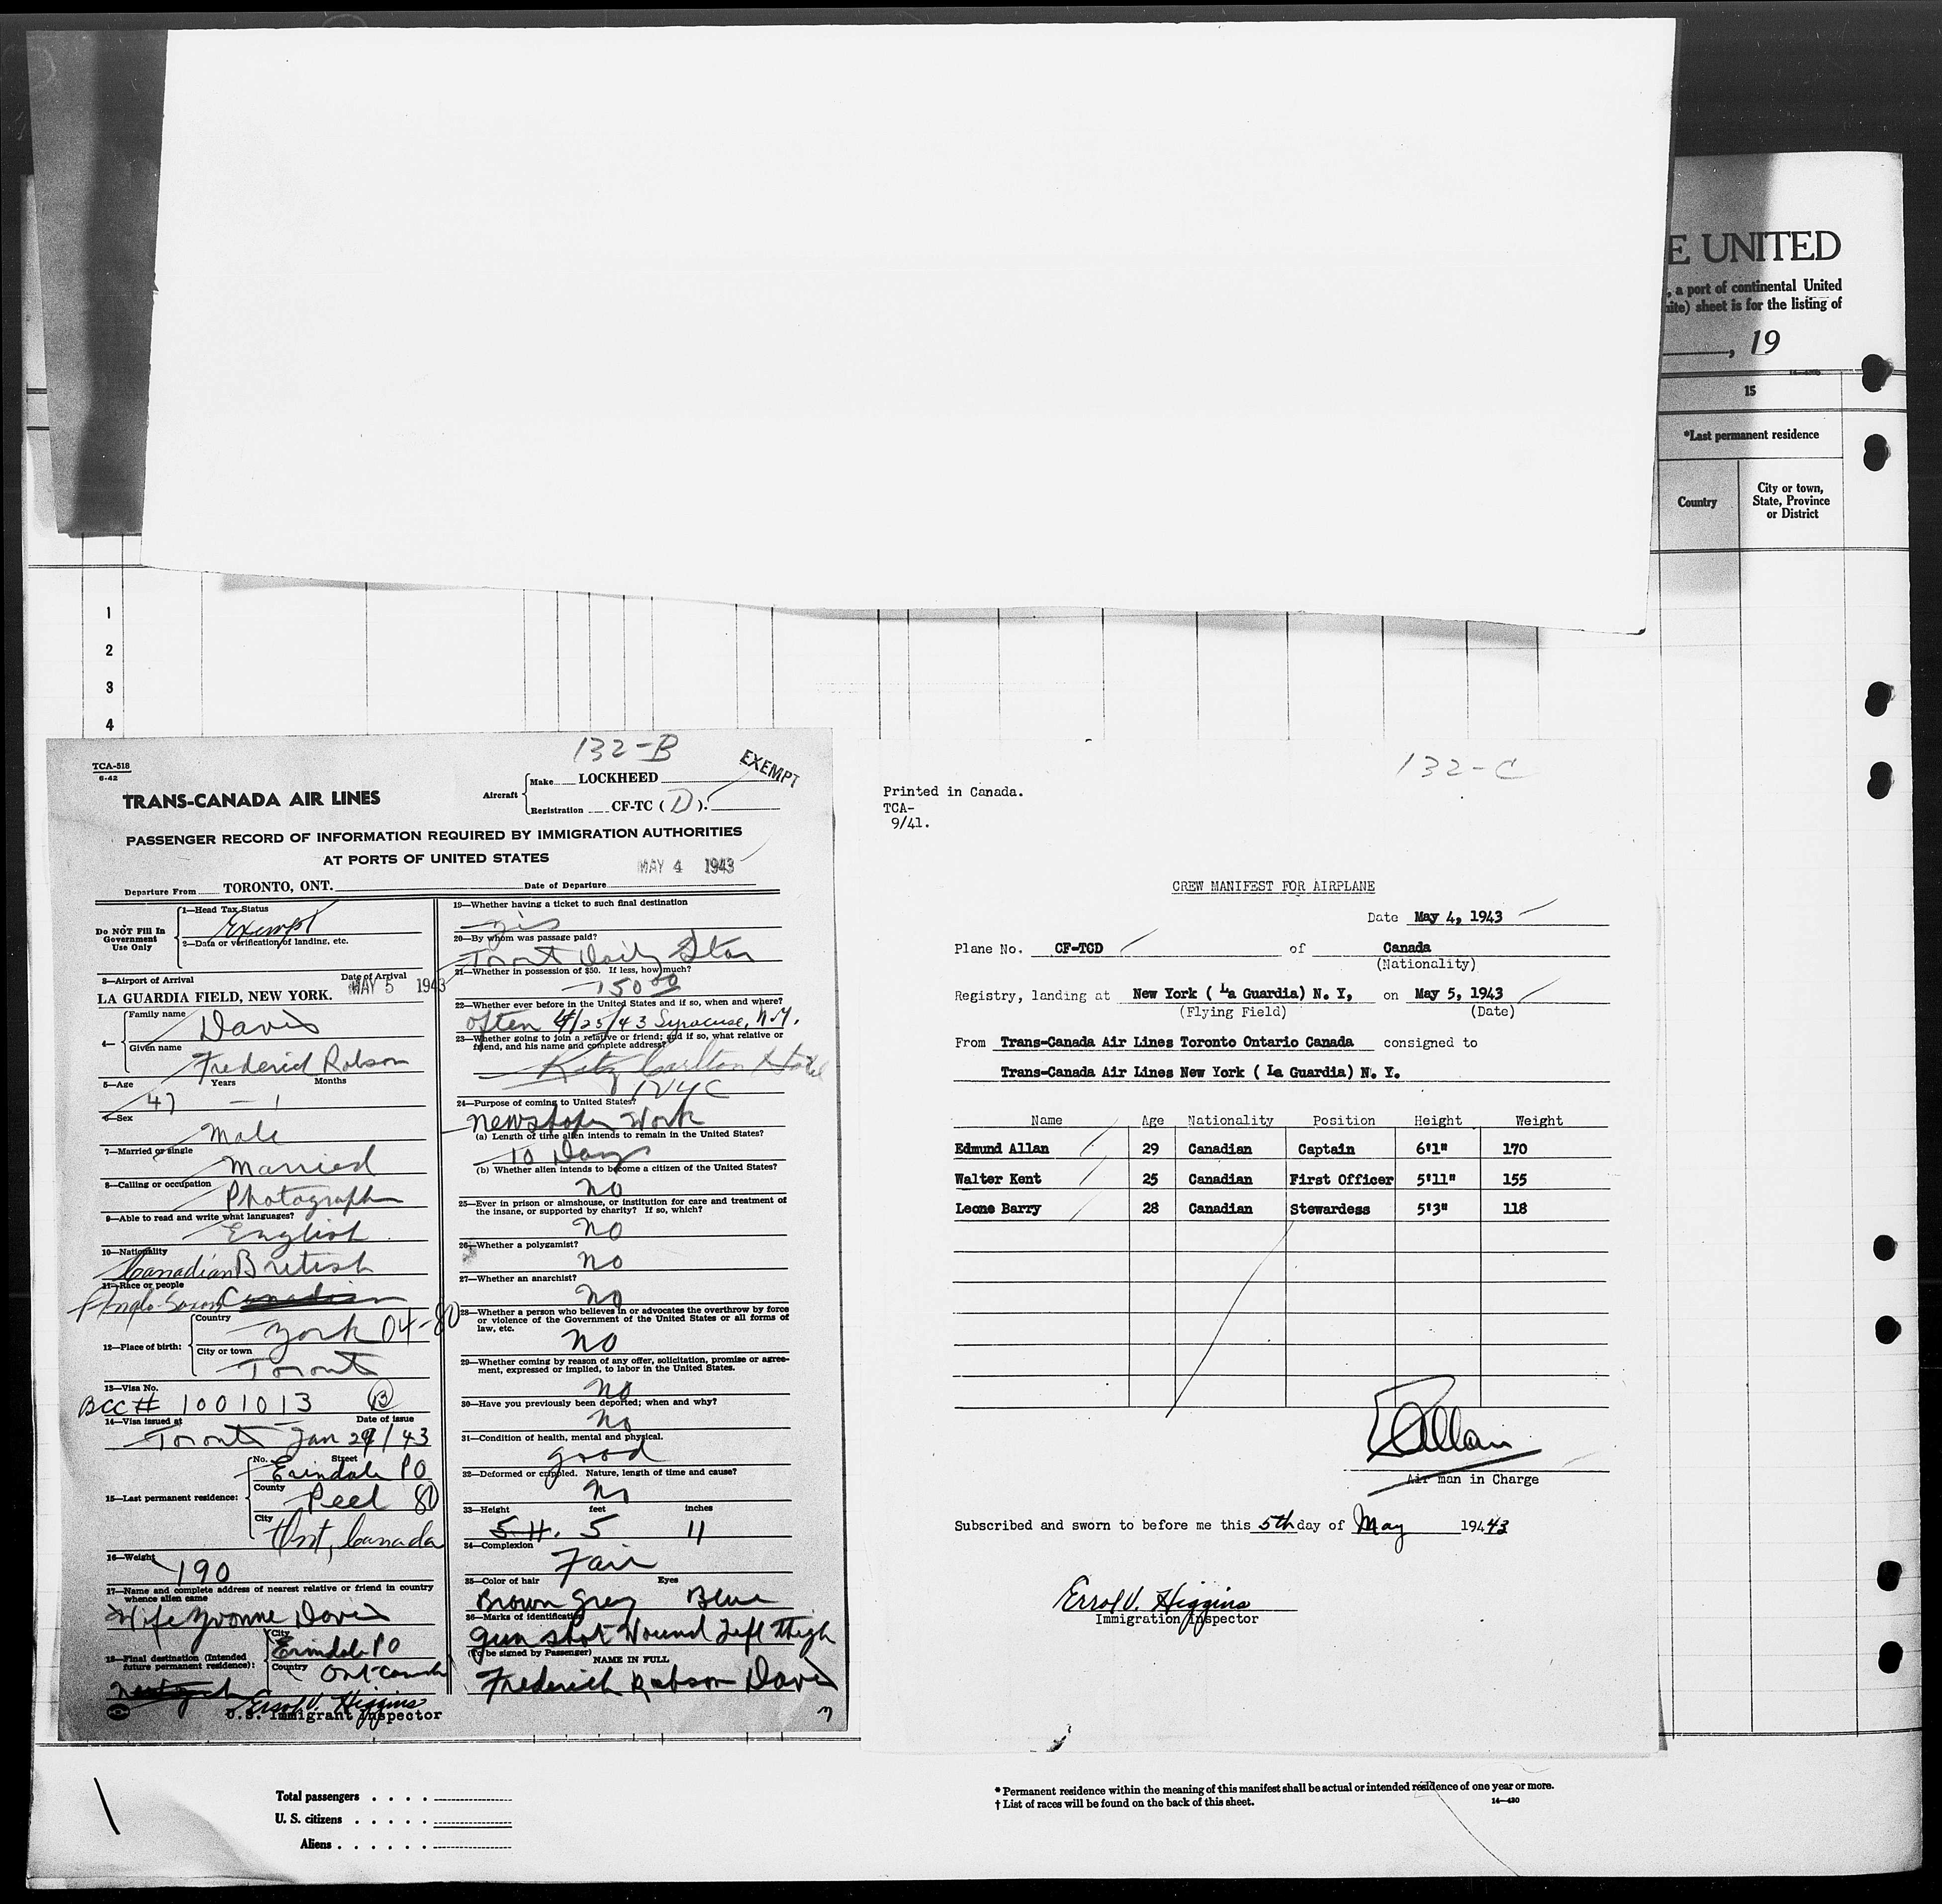 E UNITED
, a port of continental United
ite) sheet is for the listing of
, 19
15
*Last permanent residence
Country
City or town,
State, Province
or District
1
2
3
4
132-B
TCA-518
6-42
EXEMPT
Aircraft
Make LOCKHEED
Registration CF-TC ( D ).
TRANS-CANADA AIR LINES
PASSENGER RECORD OF INFORMATION REQUIRED BY IMMIGRATION AUTHORITIES
AT PORTS OF UNITED STATES
MAY 4 1943
Departure From TORONTO, ONT. Date of Departure
Do NOT Fill In
Government
Use Only
1—Head Tax Status
Exempt
2—Data or verification of landing, etc.
3—Airport of Arrival Date of Arrival
LA GUARDIA FIELD, NEW YORK. MAY 5 1943
4—
Family name
Davis
Given name
Frederick Robson
5—Age Years Months
47 — 1
6—Sex
Male
7—Married or single
Married
8—Calling or occupation
Photographer
9—Able to read and write what languages?
English
10—Nationality
Canadian British
11—Race or people
Anglo-Saxon Canadian
12—Place of birth:
Country
York 04-80
City or town
Toronto
13—Visa No.
BCC # 1001013 B
14—Visa issued at Date of issue
Toronto Jan 29/43
15—Last permanent residence:
No. Street
Erindale PO
County
Peel 80
City
Ont, Canada
16—Weight
190
17—Name and complete address of nearest relative or friend in country
whence alien came
Wife Yvonne Davis
18—Final destination (Intended
future permanent residence):
City
Erindale PO
Country Ont Canada
Errol V. Higgins
U.S. Immigrant Inspector
19—Whether having a ticket to such final destination
yes
20—By whom was passage paid?
Toront Daily Star
21—Whether in possession of $50. If less, how much?
150 00
22—Whether ever before in the United States and if so, when and where?
often 4/25/43 Syracuse, N.Y.
23—Whether going to join a relative or friend; and if so, what relative or
friend, and his name and complete address?
Ritz Carlton Hotel
NYC
24—Purpose of coming to United States?
Newspaper Work
(a) Length of time alien intends to remain in the United States?
10 Days
(b) Whether alien intends to become a citizen of the United States?
No
25—Ever in prison or almshouse, or institution for care and treatment of
the insane, or supported by charity? If so, which?
No
26—Whether a polygamist?
No
27—Whether an anarchist?
No
28—Whether a person who believes in or advocates the overthrow by force
or violence of the Government of the United States or all forms of
law, etc.
No
29—Whether coming by reason of any offer, solicitation, promise or agree-
ment, expressed or implied, to labor in the United States.
No
30—Have you previously been deported; when and why?
No
31—Condition of health, mental and physical.
good
32—Deformed or crippled. Nature, length of time and cause?
No
33—Height feet inches
5 11
34—Complexion
Fair
35—Color of hair Eyes
Brown Grey Blue
36—Marks of identification
gun shot Wound Left thigh
(To be signed by Passenger) NAME IN FULL
Frederick Robson Davis
132-C
Printed in Canada.
TCA-
9/41.
CREW MANIFEST FOR AIRPLANE
Date May 4, 1943
Plane No. CF-TCD of Canada
(Nationality)
Registry, landing at New York ( La Guardia) N. Y, on May 5, 1943
(Flying Field) (Date)
From Trans-Canada Air Lines Toronto Ontario Canada consigned to
Trans-Canada Air Lines New York ( La Guardia) N. Y.
Name Age Nationality Position Height Weight
Edmund Allan 29 Canadian Captain 6'1" 170
Walter Kent 25 Canadian First Officer 5'11" 155
Leone Barry 28 Canadian Stewardess 5'3" 118
E Allan
Air man in Charge
Subscribed and sworn to before me this 5th day of May 1943
Errol V. Higgins
Immigration Inspector
Total passengers
U. S. citizens
Aliens
* Permanent residence within the meaning of this manifest shall be actual or intended residence of one year or more.
† List of races will be found on the back of this sheet. 14—430